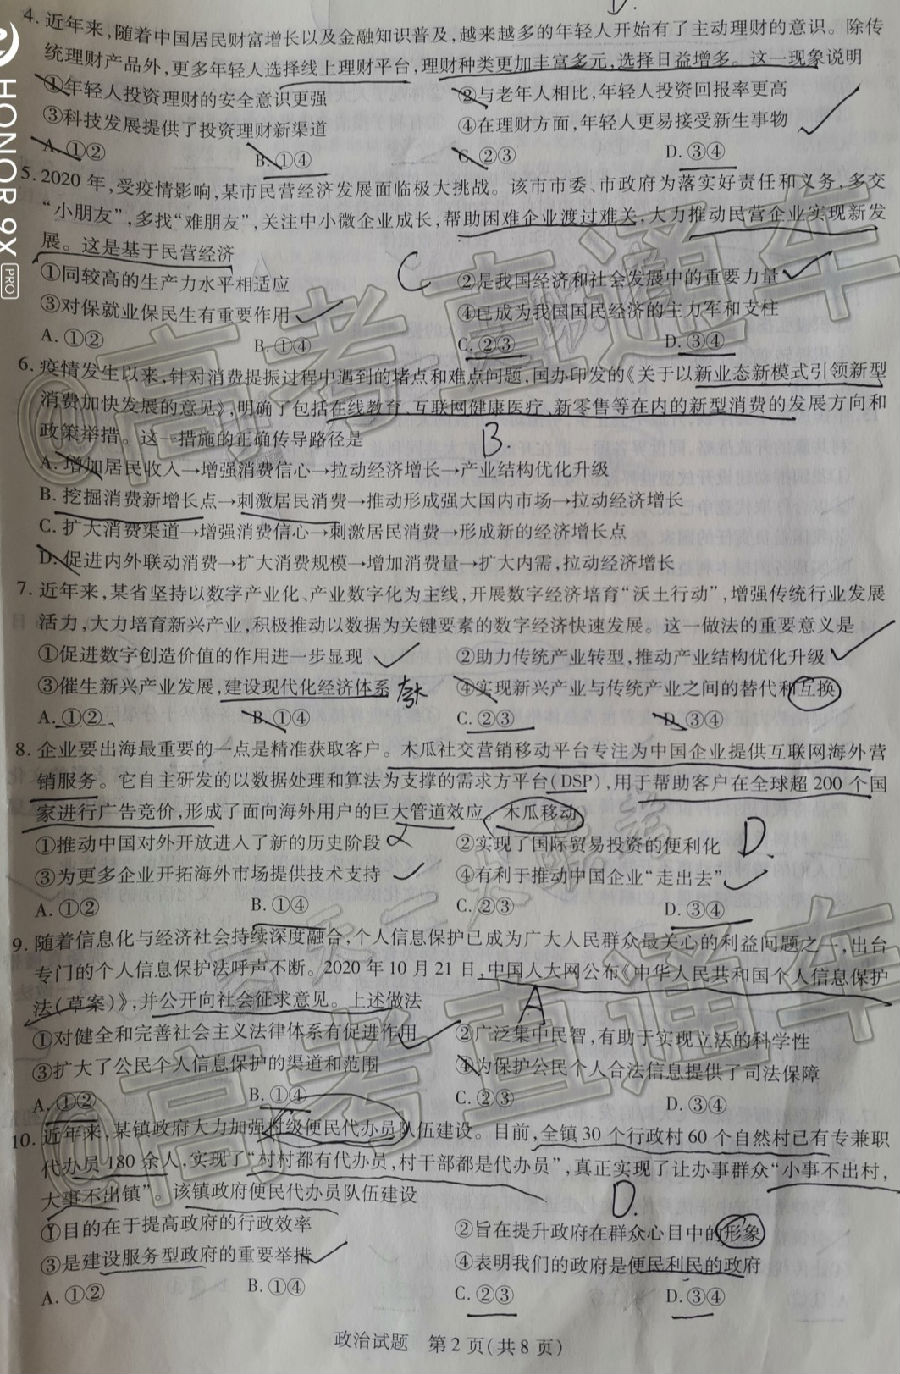 4. 近年来,随着中国居民财富增长以及金融知识普及,越来越多的年轻人开始有了主动理财的意识。除传
统理财产品外,更多年轻人选择线上理财平台,理财种类更加丰富多元,选择日益增多。这一现象说明
①年轻人投资理财的安全意识更强 ②与老年人相比,年轻人投资回报率更高
③科技发展提供了投资理财新渠道 ④在理财方面,年轻人更易接受新生事物
A. ①② B. ①④ C. ②③ D. ③④
5. 2020 年,受疫情影响,某市民营经济发展面临极大挑战。该市市委、市政府为落实好责任和义务,多交
“小朋友”,多找“难朋友”,关注中小微企业成长,帮助困难企业渡过难关,大力推动民营企业实现新发
展。这是基于民营经济
C
①同较高的生产力水平相适应 ②是我国经济和社会发展中的重要力量
③对保就业保民生有重要作用 ④已成为我国国民经济的主力军和支柱
A. ①② B. ①④ C. ②③ D. ③④
6. 疫情发生以来,针对消费提振过程中遇到的堵点和难点问题,国办印发的《关于以新业态新模式引领新型
消费加快发展的意见》,明确了包括在线教育、互联网健康医疗、新零售等在内的新型消费的发展方向和
政策举措。这一措施的正确传导路径是
B.
A. 增加居民收入→增强消费信心→拉动经济增长→产业结构优化升级
B. 挖掘消费新增长点→刺激居民消费→推动形成强大国内市场→拉动经济增长
C. 扩大消费渠道→增强消费信心→刺激居民消费→形成新的经济增长点
D. 促进内外联动消费→扩大消费规模→增加消费量→扩大内需,拉动经济增长
7. 近年来,某省坚持以数字产业化、产业数字化为主线,开展数字经济培育“沃土行动”,增强传统行业发展
活力,大力培育新兴产业,积极推动以数据为关键要素的数字经济快速发展。这一做法的重要意义是
①促进数字创造价值的作用进一步显现 ②助力传统产业转型,推动产业结构优化升级
③催生新兴产业发展,建设现代化经济体系 ④实现新兴产业与传统产业之间的替代和互换
A. ①② B. ①④ C. ②③ D. ③④
8. 企业要出海最重要的一点是精准获取客户。木瓜社交营销移动平台专注为中国企业提供互联网海外营
销服务。它自主研发的以数据处理和算法为支撑的需求方平台(DSP),用于帮助客户在全球超 200 个国
家进行广告竞价,形成了面向海外用户的巨大管道效应。木瓜移动
①推动中国对外开放进入了新的历史阶段 ②实现了国际贸易投资的便利化
D.
③为更多企业开拓海外市场提供技术支持 ④有利于推动中国企业“走出去”
A. ①② B. ①④ C. ②③ D. ③④
9. 随着信息化与经济社会持续深度融合,个人信息保护已成为广大人民群众最关心的利益问题之一,出台
专门的个人信息保护法呼声不断。2020 年 10 月 21 日,中国人大网公布《中华人民共和国个人信息保护
法(草案)》,并公开向社会征求意见。上述做法
A
①对健全和完善社会主义法律体系有促进作用 ②广泛集中民智,有助于实现立法的科学性
③扩大了公民个人信息保护的渠道和范围 ④为保护公民个人合法信息提供了司法保障
A. ①② B. ①④ C. ②③ D. ③④
10. 近年来,某镇政府大力加强村级便民代办员队伍建设。目前,全镇 30 个行政村 60 个自然村已有专兼职
代办员 180 余人,实现了“村村都有代办员,村干部都是代办员”,真正实现了让办事群众“小事不出村,
大事不出镇”。该镇政府便民代办员队伍建设
D.
①目的在于提高政府的行政效率 ②旨在提升政府在群众心目中的形象
③是建设服务型政府的重要举措 ④表明我们的政府是便民利民的政府
A. ①② B. ①④ C. ②③ D. ③④
政治试题 第 2 页(共 8 页)
HONOR 9X PRO
@高考直通车
@高考直通车